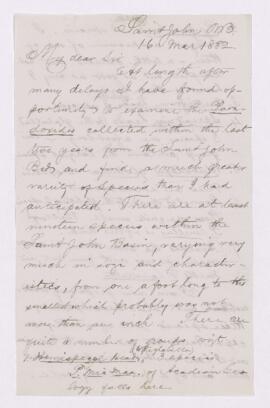 Saint John N.B.
16 Mar 1882
My dear Sir
At length after
many delays I have found op-
portunity to examine the Para-
doxides collected within the last
two years from the Saint John
Beds and find a much greater
variety of species than I had
anticipated. There are at least
nineteen species within the
Saint John Basin, varying very
much in size and character-
istics, from one a foot long to the
smallest which probably was not
more than an inch. There are
quite a number of groups, with
species
P. Micmac, of Acadian Geo-
logy falls here.